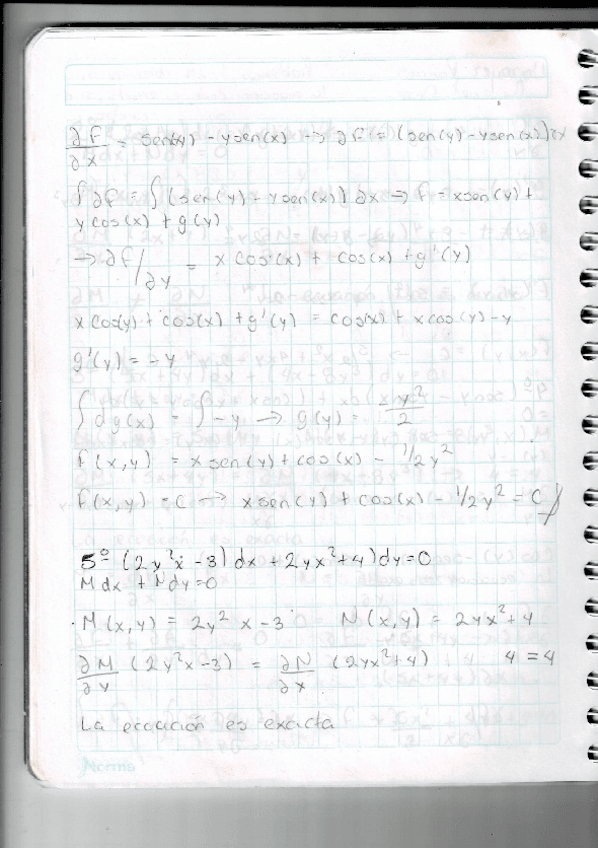 ∂F/∂x = sen(y) - y sen(x) → ∂F = (sen(y) - y sen(x)) ∂x
∫∂f = ∫(sen(y) - y sen(x)) ∂x → f = x sen(y) +
y cos(x) + g(y)
→ ∂f/∂y = x cos(x) + cos(x) + g'(y)
x cos(y) + cos(x) + g'(y) = cos(x) + x cos(y) - y
g'(y) = -y
∫dg(x) = ∫-y → g(y) = - y²/2
f(x,y) = x sen(y) + cos(x) - 1/2y²
f(x,y) = C → x sen(y) + cos(x) - 1/2y² = C
5º (2y²x - 3) dx + 2yx² + 4) dy = 0
Mdx + Ndy = 0
M(x,y) = 2y² x - 3 N(x,y) = 2yx² + 4
∂M/∂y (2y²x - 3) = ∂N/∂x (2yx² + 4) 4 = 4
La ecuación es exacta
Norma